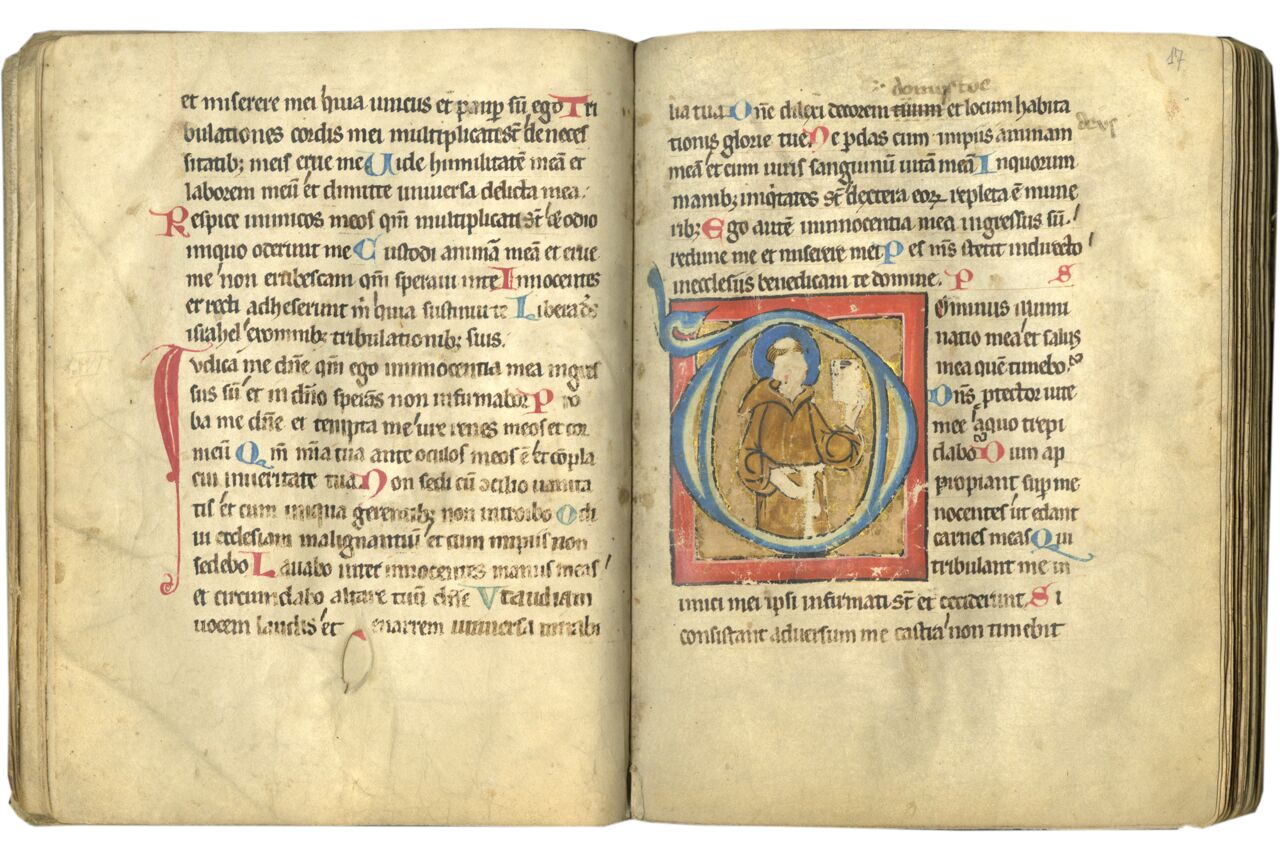 et miserere mei quia unicus et paup sū ego Tri
bulationes cordis mei multiplicate st̄ de neces
sitatib; meis erue me Uide humilitatē meā et
laborem meū et dimitte universa delicta mea.
Respice inimicos meos qm̄ multiplicati st̄ et odio
iniquo oderunt me Custodi animā meā et erue
me non erubescam qm̄ speravi in te Innocentes
et recti adheserunt m̄ quia sustinui te Libera ds̄
israhel ex omnib; tribulationib; suis.
Iudica me dn̄e qm̄ ego in innocentia mea ingres
sus sū et in dn̄o sperās non infirmabor Pro
ba me dn̄e et tempta me ure renes meos et cor
meū Qm̄ mīa tua ante oculos meos ē et cōpla
cui in veritate tua Non sedi cū cōcilio vanita
tis et cum iniqua gerentib; non introibo Odi
vi ecclesiam malignantiū et cum impiis non
sedebo Lavabo inter innocentes manus meas
et circumdabo altare tuū dn̄e Ut audiam
vocem laudis et enarrem universa mirabi
domus tue
17
lia tua Dn̄e dilexi decorem tuum et locum habita
tionis glorie tue Ne perdas cum impiis animam
deus
meā et cum viris sanguinū vitā meā In quorum
manib; iniqitates st̄ dextera eoꝝ repleta ē mune
rib; Ego autē in innocentia mea ingressus sū.
redime me et miserere mei Pes ms̄ stetit in directo
in ecclesiis benedicam te domine. P S
Ominus illumi
natio mea et salus
mea quē timebo.
Dns̄ ptector vite
mee a quo trepi
dabo Dum ap
propiant sup me
nocentes ut edant
carnes meas Qui
tribulant me in
imici mei ipsi infirmati st̄ et ceciderunt. Si
consistant adversum me castra non timebit